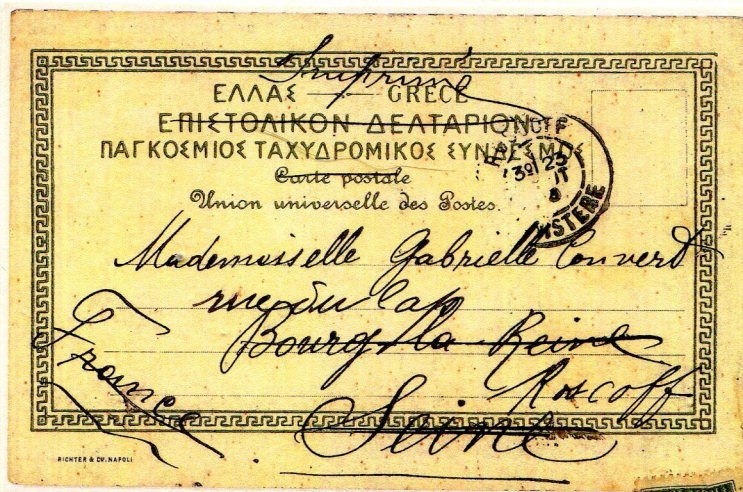 Imprimé
ΕΛΛΑΣ — GRÈCE
ΕΠΙΣΤΟΛΙΚΟΝ ΔΕΛΤΑΡΙΟΝ
ΠΑΓΚΟΣΜΙΟΣ ΤΑΧΥΔΡΟΜΙΚΟΣ ΣΥΝΔΕΣΜΟΣ
Carte postale
Union universelle des Postes.
ROSCOFF
23
FINISTERE
Mademoiselle Gabrielle Convert
rue du Cap
Bourg la Reine
Roscoff
Seine
France
RICHTER & Cº. NAPOLI